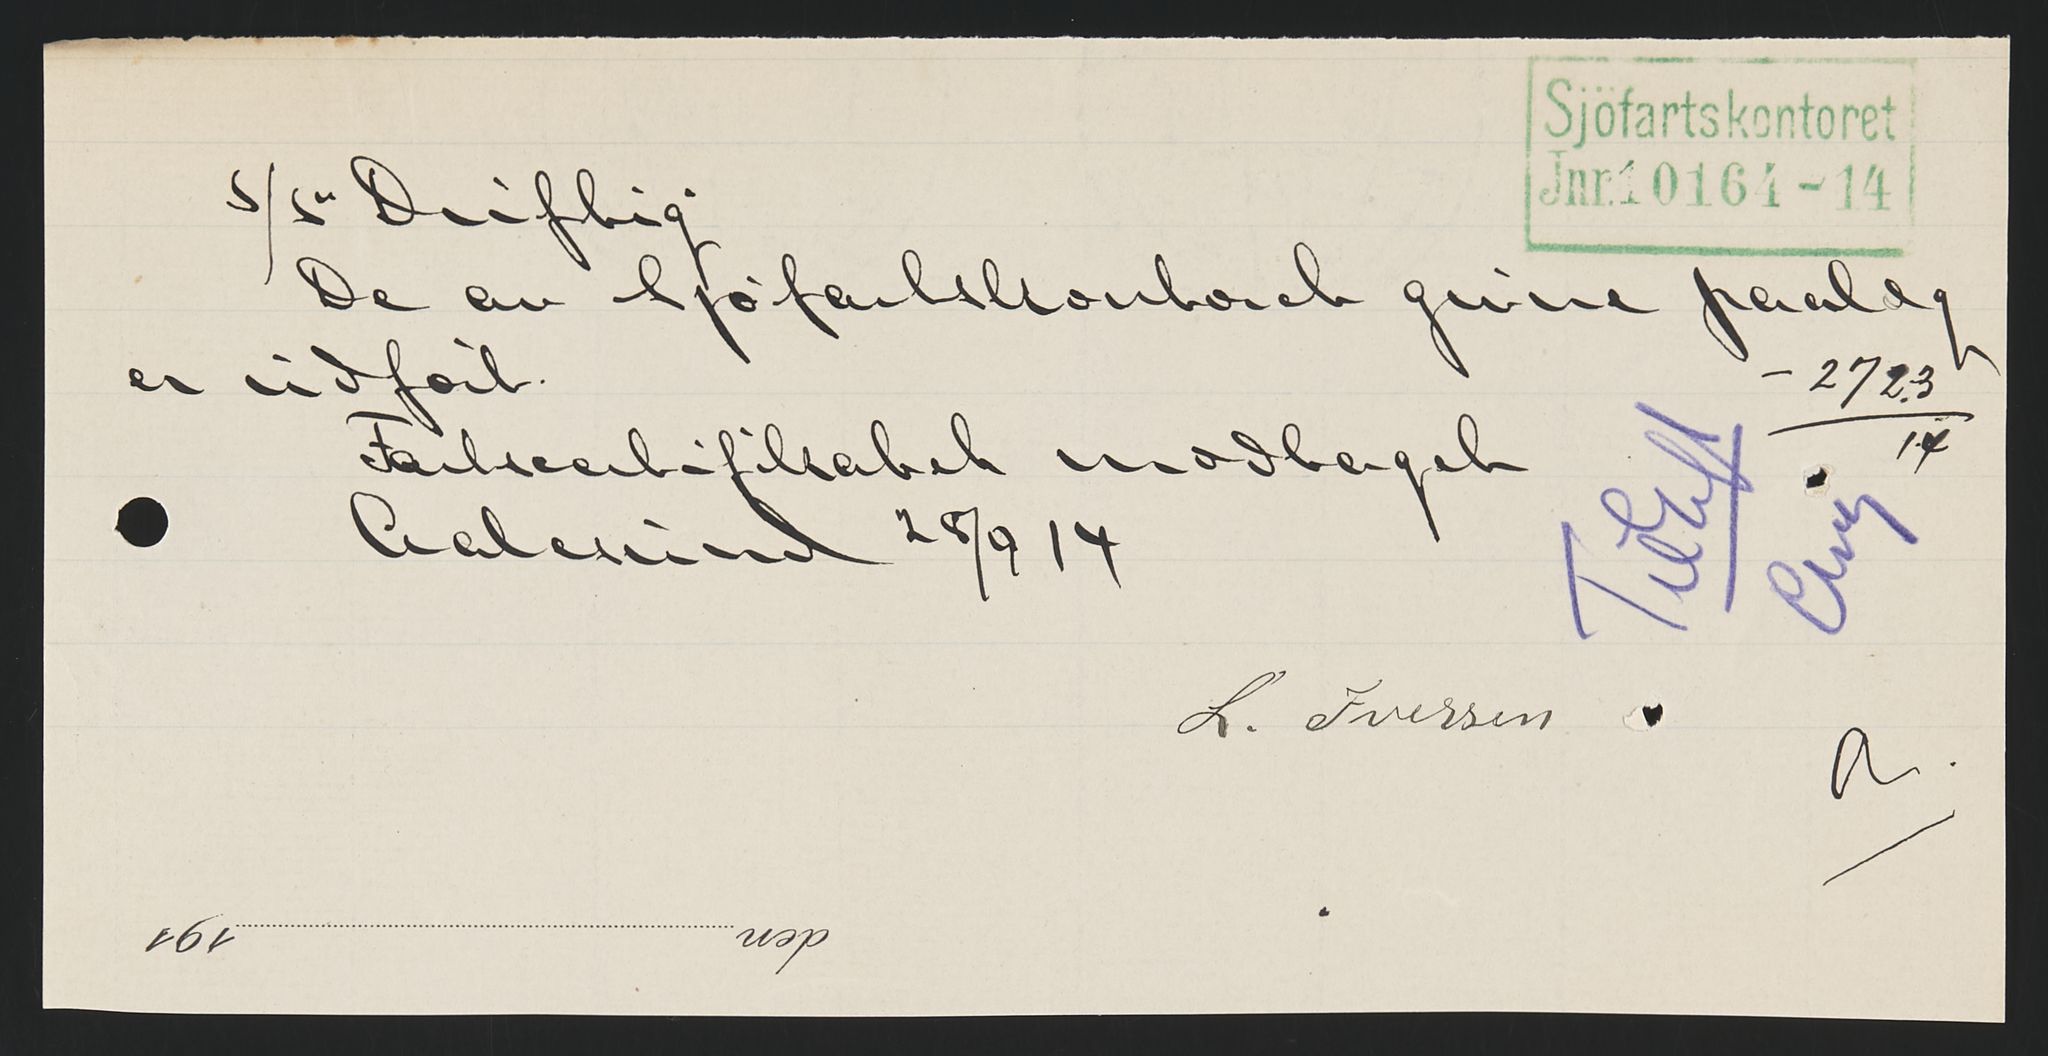 Sjöfartskontoret
Jnr. 10164-14
S/S "Driftig"
De av Sjöfartskontoret givne paalæg
er udført.
- 2723
14
Fartscertifikatet modtaget
Aalesund 28/9 14
L. Iversen
den 191